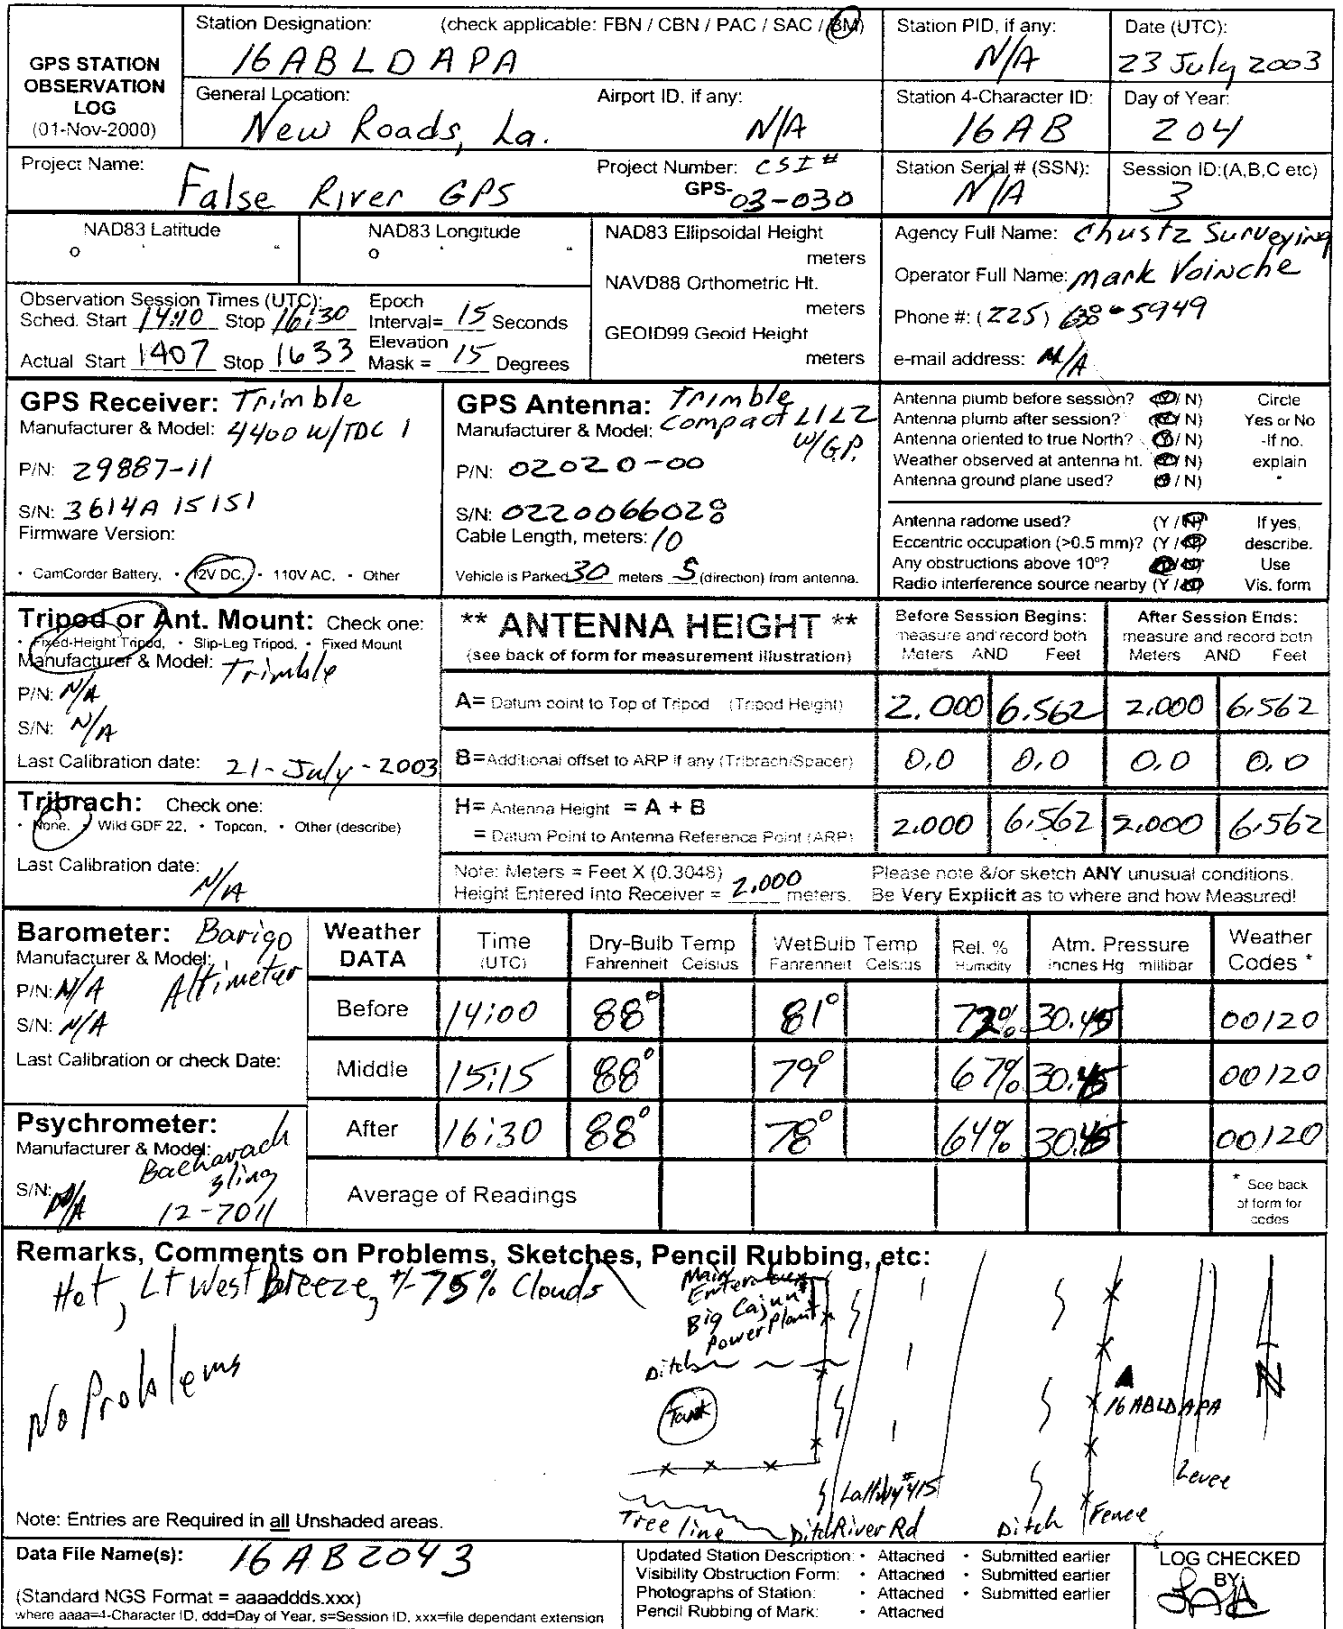 GPS STATION OBSERVATION LOG (01-Nov-2000)
Station Designation: (check applicable: FBN / CBN / PAC / SAC / BM)
16ABLDAPA
Station PID, if any:
N/A
Date (UTC):
23 July 2003
General Location:
New Roads, La.
Airport ID, if any:
N/A
Station 4-Character ID:
16AB
Day of Year:
204
Project Name:
False River GPS
Project Number: CSI #
GPS-03-030
Station Serial # (SSN):
N/A
Session ID:(A,B,C etc)
3
NAD83 Latitude
o ‘ “
NAD83 Longitude
o ‘ “
NAD83 Ellipsoidal Height
meters
NAVD88 Orthometric Ht.
meters
GEOID99 Geoid Height
meters
Agency Full Name: Chustz Surveying
Operator Full Name: Mark Voinche
Phone #: (225) -5949
e-mail address: N/A
Observation Session Times (UTC):
Sched. Start 14:10 Stop 16:30
Actual Start 1407 Stop 1633
Epoch
Interval= 15 Seconds
Elevation
Mask = 15 Degrees
GPS Receiver: Trimble
Manufacturer & Model: 4400 W/TDC 1
P/N: 29887-11
S/N: 3614A 15151
Firmware Version:
• CamCorder Battery, • 12V DC, • 110V AC, • Other
GPS Antenna: Trimble
Manufacturer & Model: Compact L1L2
W/G.P.
P/N: 02020-00
S/N: 0220066028
Cable Length, meters: 10
Vehicle is Parked 30 meters S (direction) from antenna.
Antenna plumb before session? (Y / N) Circle
Antenna plumb after session? (Y / N) Yes or No
Antenna oriented to true North? (Y / N) -If no.
Weather observed at antenna ht. (Y / N) explain
Antenna ground plane used? (Y / N)
Antenna radome used? (Y / N) If yes,
Eccentric occupation (>0.5 mm)? (Y / N) describe.
Any obstructions above 10°? (Y / N) Use
Radio interference source nearby (Y / N) Vis. form
Tripod or Ant. Mount: Check one:
• Fixed-Height Tripod, • Slip-Leg Tripod, • Fixed Mount
Manufacturer & Model: Trimble
P/N: N/A
S/N: N/A
Last Calibration date: 21-July-2003
** ANTENNA HEIGHT **
(see back of form for measurement illustration)
Before Session Begins:
measure and record both
Meters AND Feet
After Session Ends:
measure and record both
Meters AND Feet
A= Datum point to Top of Tripod (Tripod Height)
2.000 6.562 2.000 6.562
B=Additional offset to ARP if any (Tribrach/Spacer)
0.0 0.0 0.0 0.0
Tribrach: Check one:
• None, • Wild GDF 22, • Topcon, • Other (describe)
Last Calibration date:
N/A
H= Antenna Height = A + B
= Datum Point to Antenna Reference Point (ARP)
2.000 6.562 2.000 6.562
Note: Meters = Feet X (0.3048)
Height Entered Into Receiver = 2.000 meters.
Please note &/or sketch ANY unusual conditions.
Be Very Explicit as to where and how Measured!
Barometer: Barigo
Manufacturer & Model: Altimeter
P/N: N/A
S/N: N/A
Last Calibration or check Date:
Psychrometer:
Manufacturer & Model:
Bacharach
Sling
S/N: N/A 12-7011
Weather DATA
Time (UTC)
Dry-Bulb Temp
Fahrenheit Celsius
WetBulb Temp
Fahrenheit Celsius
Rel. %
Humidity
Atm. Pressure
inches Hg millibar
Weather Codes *
Before 14:00 88° 81° 72% 30.45 00120
Middle 15:15 88° 79° 67% 30.45 00120
After 16:30 88° 78° 64% 30.45 00120
Average of Readings
* See back
of form for
codes
Remarks, Comments on Problems, Sketches, Pencil Rubbing, etc:
Hot, Lt West Breeze, +/- 75% Clouds
No Problems
Main
Big Cajun
Power Plant
Ditch
Tank
N
16ABLDAPA
Levee
LaHwy #415
Tree line
Ditch
River Rd
Ditch
Fence
Note: Entries are Required in all Unshaded areas.
Data File Name(s): 16AB2043
(Standard NGS Format = aaaaddds.xxx)
where aaaa=4-Character ID, ddd=Day of Year, s=Session ID, xxx=file dependant extension
Updated Station Description: • Attached • Submitted earlier
Visibility Obstruction Form: • Attached • Submitted earlier
Photographs of Station: • Attached • Submitted earlier
Pencil Rubbing of Mark: • Attached
LOG CHECKED
BY: